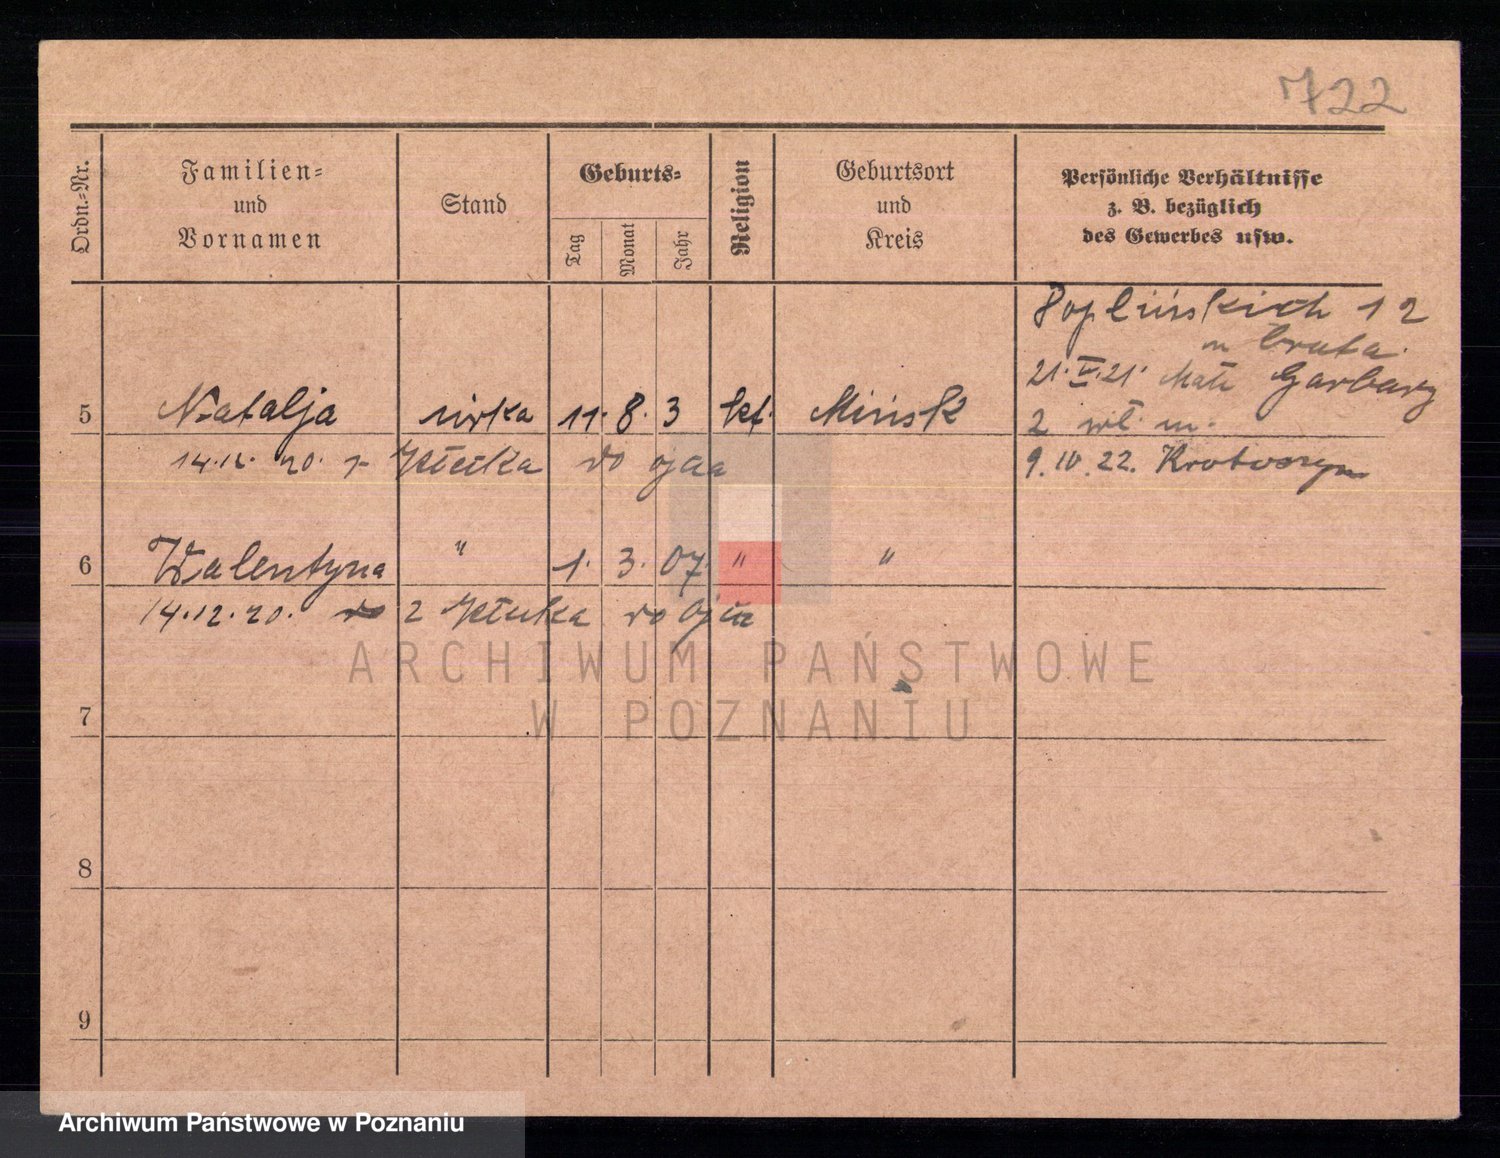 722
Ordn.-Nr.
Familien-
und
Vornamen
Stand
Geburts-
Tag
Monat
Jahr
Religion
Geburtsort
und
Kreis
Persönliche Verhältnisse
z. B. bezüglich
des Gewerbes usw.
Poplińskich 12
u brata
21.V.21. Garbary
2
9.IV.22. Krotoszyn
5 Natalja córka 11. 8. 3 kt. Mińsk
14.12.20. z Kłecka do ojca
6 Walentyna " 1. 3. 07. " "
14.12.20. z Kłecka do ojca
7
8
9
ARCHIWUM PAŃSTWOWE
W POZNANIU
Archiwum Państwowe w Poznaniu